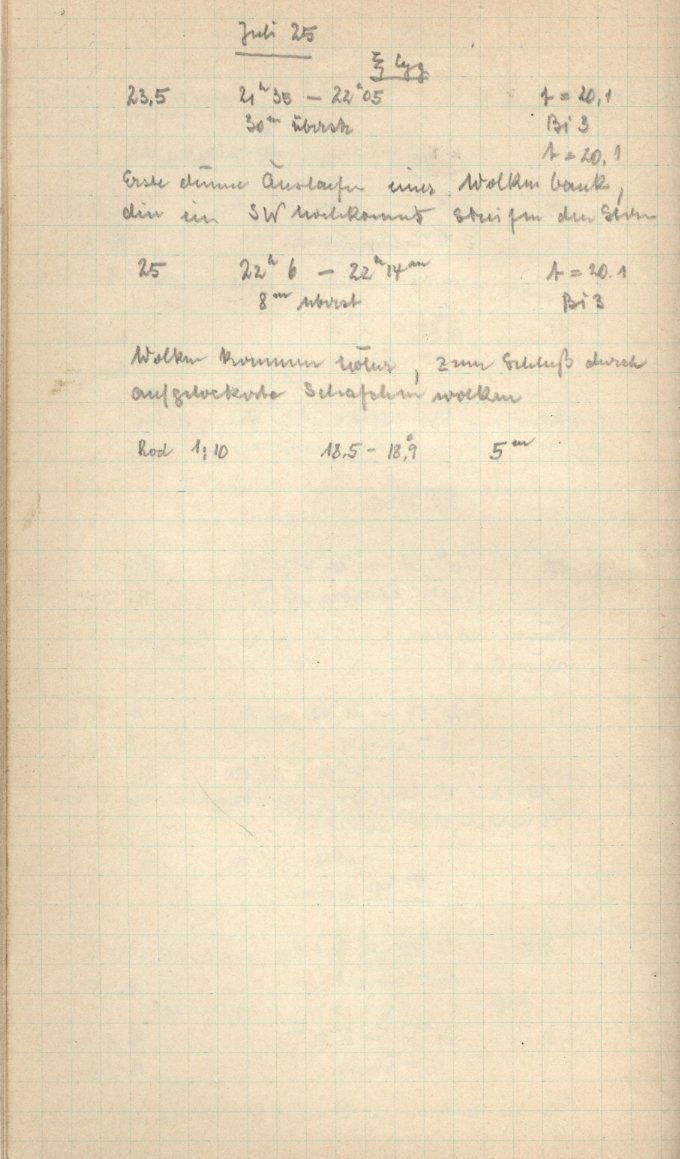 Juli 25
ξ Cyg
23,5 21ʰ35 – 22ʰ05 t = 20,1
30ᵐ überst Bi 3
t = 20,1
Erste dünne Ausläufer einer Wolkenbank,
die in SW hochkommt streifen den Stern
25 22ʰ 6 – 22ʰ14ᵐ t = 20.1
8ᵐ überst Bi 3
Wolken kommen höher, zum Schluß durch
aufgelockerte Schäfchenwolken
Rod 1:10 18,5 – 18,9 5ᵐ